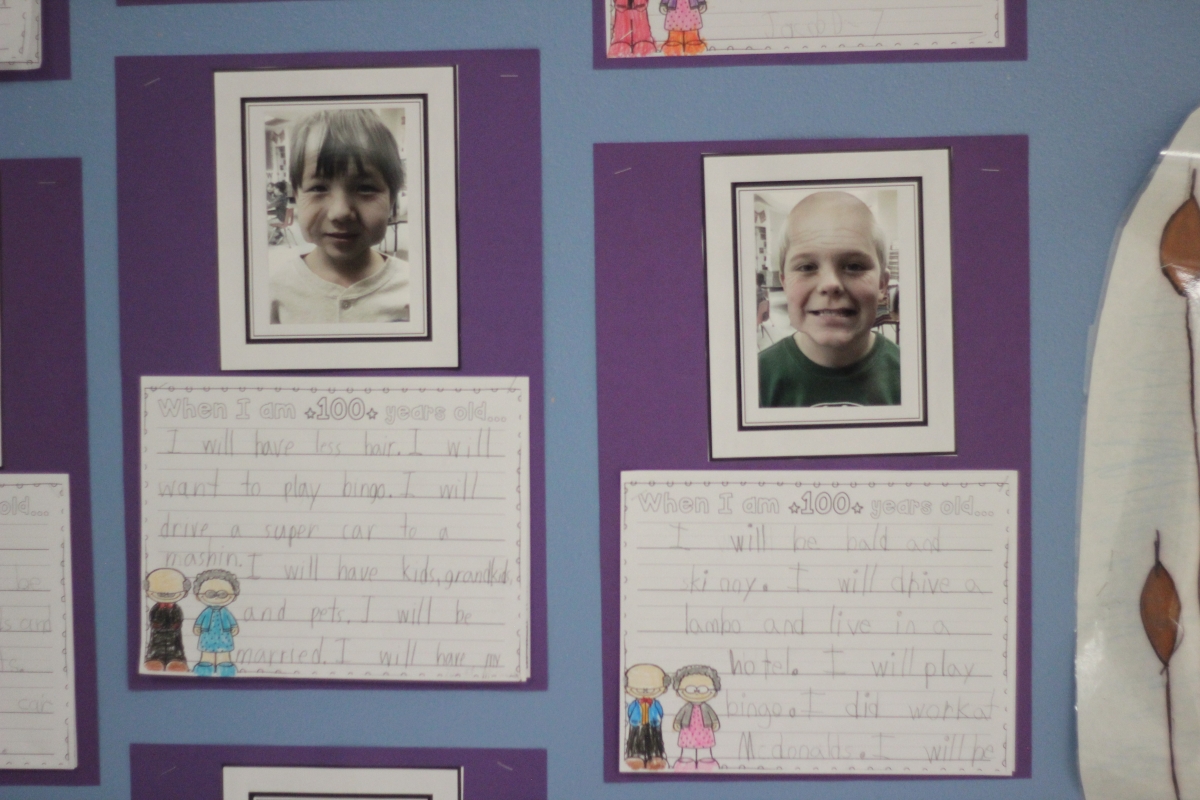 When I am 100 years old...
I will have less hair. I will
want to play bingo. I will
drive a super car to a
mashin. I will have kids, grandkids,
and pets. I will be
married. I will have my
When I am 100 years old...
I will be bald and
skinny. I will drive a
lambo and live in a
hotel. I will play
bingo. I did work at
Mcdonalds. I will be
old...
be
and
car